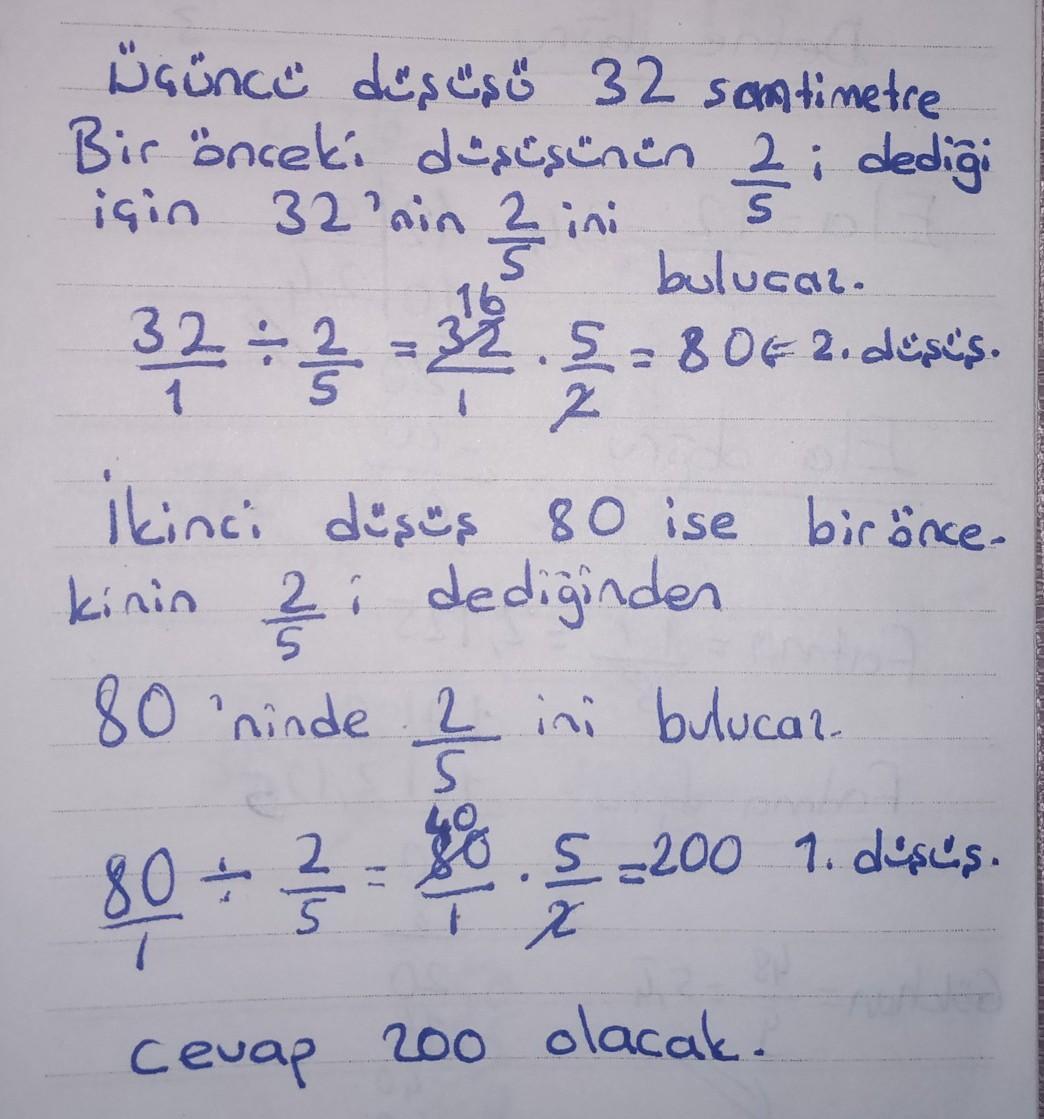 Üçüncü düşüşü 32 santimetre
Bir önceki düşüşünün 2/5 i dediği
için 32'nin 2/5 ini
bulucaz.
32/1 ÷ 2/5 = 32/1 16 . 5/2 = 80 ← 2. düşüş.
İkinci düşüş 80 ise bir önce-
kinin 2/5 i dediğinden
80 'ninde 2/5 ini bulucaz.
80/1 ÷ 2/5 = 80/1 40 . 5/2 = 200 1. düşüş.
cevap 200 olacak.